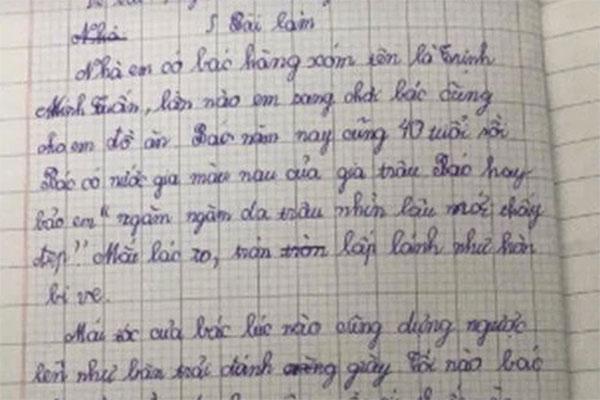 Nhà Bài làm
Nhà em có bác hàng xóm tên là Trịnh
Minh Tuấn, lần nào em sang chơi bác cũng
cho em đồ ăn Bác năm nay cũng 40 tuổi rồi
Bác có nước gia màu nau của gia trâu Bác hay
bảo em "ngăm ngăm da trâu nhìn lâu mới thấy
đẹp" Mắt bác to, tròn tròn lấp lánh như hòn
bi ve.
Mái tóc của bác lúc nào cũng dựng ngược
lên như bàn trải đánh giầy Tối nào bác